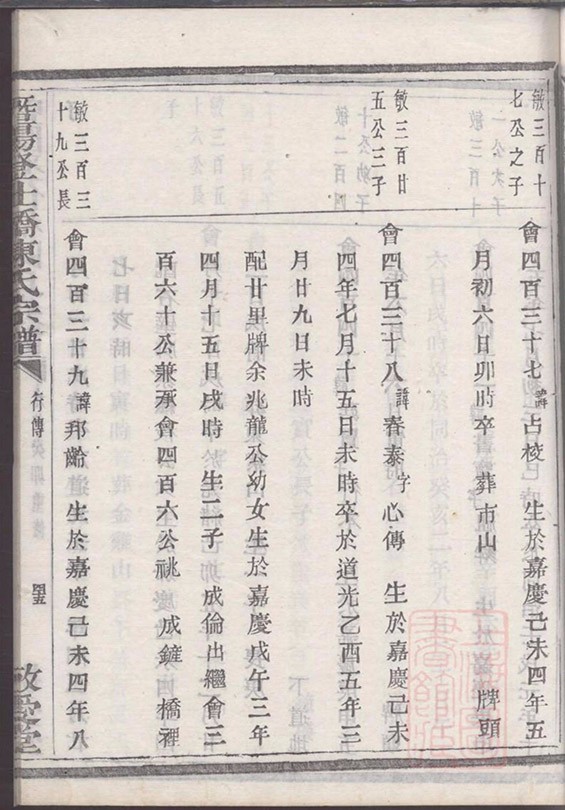 敏三百十
七公之子
會四百三十七諱占梭 生於嘉慶己未四年五
月初六日卯時卒 葬市山 牌頭
敏三百廿
五公三子
會四百三十八諱春泰字心傳 生於嘉慶己未
四年七月十五日未時卒於道光乙酉五年三
月廿九日未時
配廿里牌余兆龍公幼女生於嘉慶戊午三年
四月十五日戌時 生二子 成倫出繼會三
百六十公兼承會四百六公祧 成鏟 橋裡
敏三百三
十九公長
會四百三十九諱邦齡 生於嘉慶己未四年八
暨陽登仕橋陳氏宗譜
行傳
敬愛堂